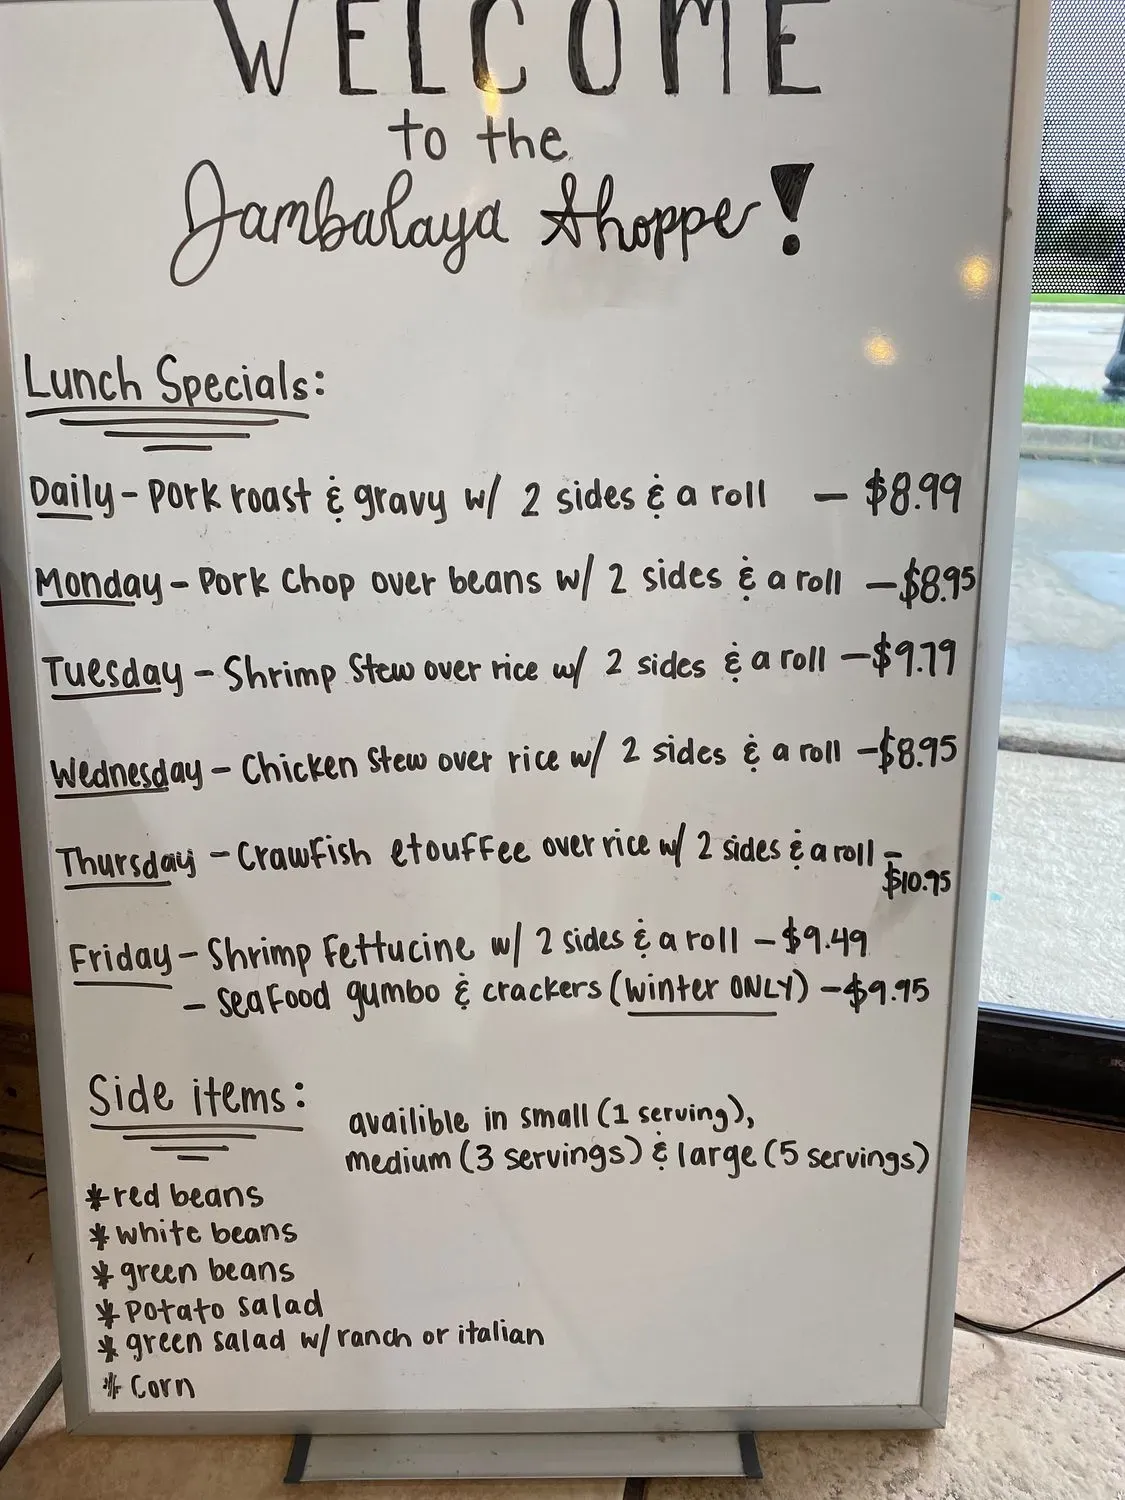 WELCOME
to the
Jambalaya Shoppe!
Lunch Specials:
Daily - Pork roast & gravy w/ 2 sides & a roll - $8.99
Monday - Pork Chop over beans w/ 2 sides & a roll - $8.95
Tuesday - Shrimp Stew over rice w/ 2 sides & a roll - $9.79
Wednesday - Chicken Stew over rice w/ 2 sides & a roll - $8.95
Thursday - Crawfish etouffee over rice w/ 2 sides & a roll -
$10.95
Friday - Shrimp Fettucine w/ 2 sides & a roll - $9.49
- Seafood gumbo & crackers (winter ONLY) - $9.95
Side items:
availible in small (1 serving),
medium (3 servings) & large (5 servings)
* red beans
* white beans
* green beans
* Potato salad
* green salad w/ ranch or italian
* Corn